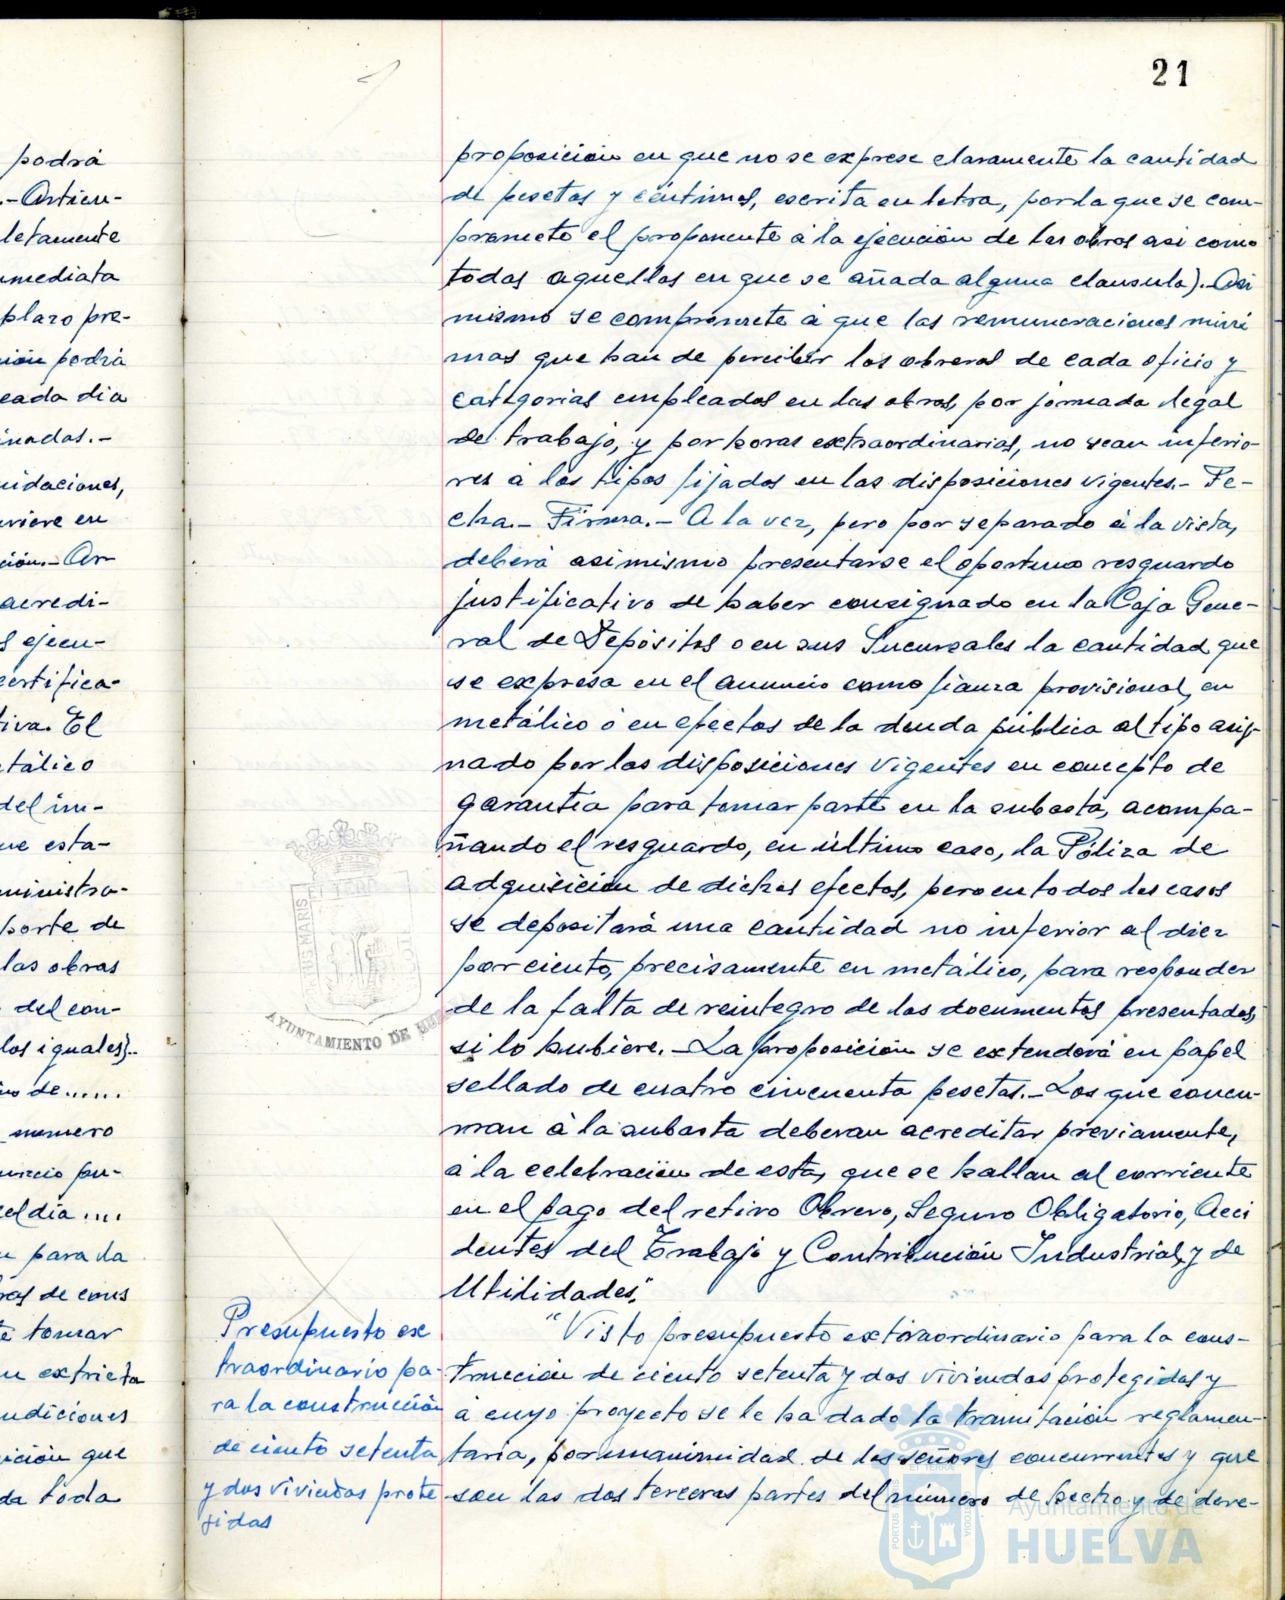 21
podrá
.-Articu-
letamente
nmediata
plazo pre-
ión podrá
cada dia
inadas.-
uidaciones,
uviere en
ción.-Ar-
acredi-
s ejecu-
certifica-
tiva. El
etálico
del im-
ue esta-
ministra-
porte de
las obras
del con-
los iguales).-
no de......
numero
uncio pu-
el dia ....
n para la
ras de cons
te tomar
n extricta
ndiciones
ición que
da toda
proposición en que no se exprese claramente la cantidad
de pesetas y céntimos, escrita en letra, por la que se com-
promete el proponente á la ejecución de las obras asi como
todas aquellas en que se añada alguna clausula).-Asi
mismo se compromete á que las remuneraciones míni
mas que han de percibir los obreros de cada oficio y
categorias empleados en las obras, por jornada legal
de trabajo, y por horas extraordinarias, no sean inferio-
res á los tipos fijados en las disposiciones vigentes.- Fe-
cha.- Firma.- A la vez, pero por separado á la vista,
deberá asimismo presentarse el oportuno resguardo
justificativo de haber consignado en la Caja Gene-
ral de Depósitos o en sus Sucursales la cantidad que
se expresa en el anuncio como fianza provisional, en
metálico ó en efectos de la deuda pública al tipo asig-
nado por las disposiciones vigentes en concepto de
garantía para tomar parte en la subasta, acompa-
ñando el resguardo, en último caso, la Póliza de
adquisición de dichos efectos, pero en todos los casos
se depositará una cantidad no inferior al diez
por ciento, precisamente en metálico, para responder
de la falta de reintegro de los documentos presentados,
si lo hubiere.-La proposición se extenderá en papel
sellado de cuatro cincuenta pesetas.-Los que concu-
rran á la subasta deberan acreditar previamente,
á la celebración de esta, que se hallan al corriente
en el pago del retiro Obrero, Seguro Obligatorio, Acci
dentes del Trabajo y Contribución Industrial, y de
Utilidades."
Presupuesto ex
traordinario pa-
ra la construcción
de ciento setenta
y dos viviendas prote
jidas
"Visto presupuesto extraordinario para la cons-
trucción de ciento setenta y dos viviendas protegidas y
á cuyo proyecto se le ha dado la tramitación reglamen-
taria, por unanimidad de los señores concurrentes y que
son las dos terceras partes del número de hecho y de dere-
PORTUS MARIS
ET TERRE
CUSTODIA
AYUNTAMIENTO DE HUE
Ayuntamiento de
HUELVA